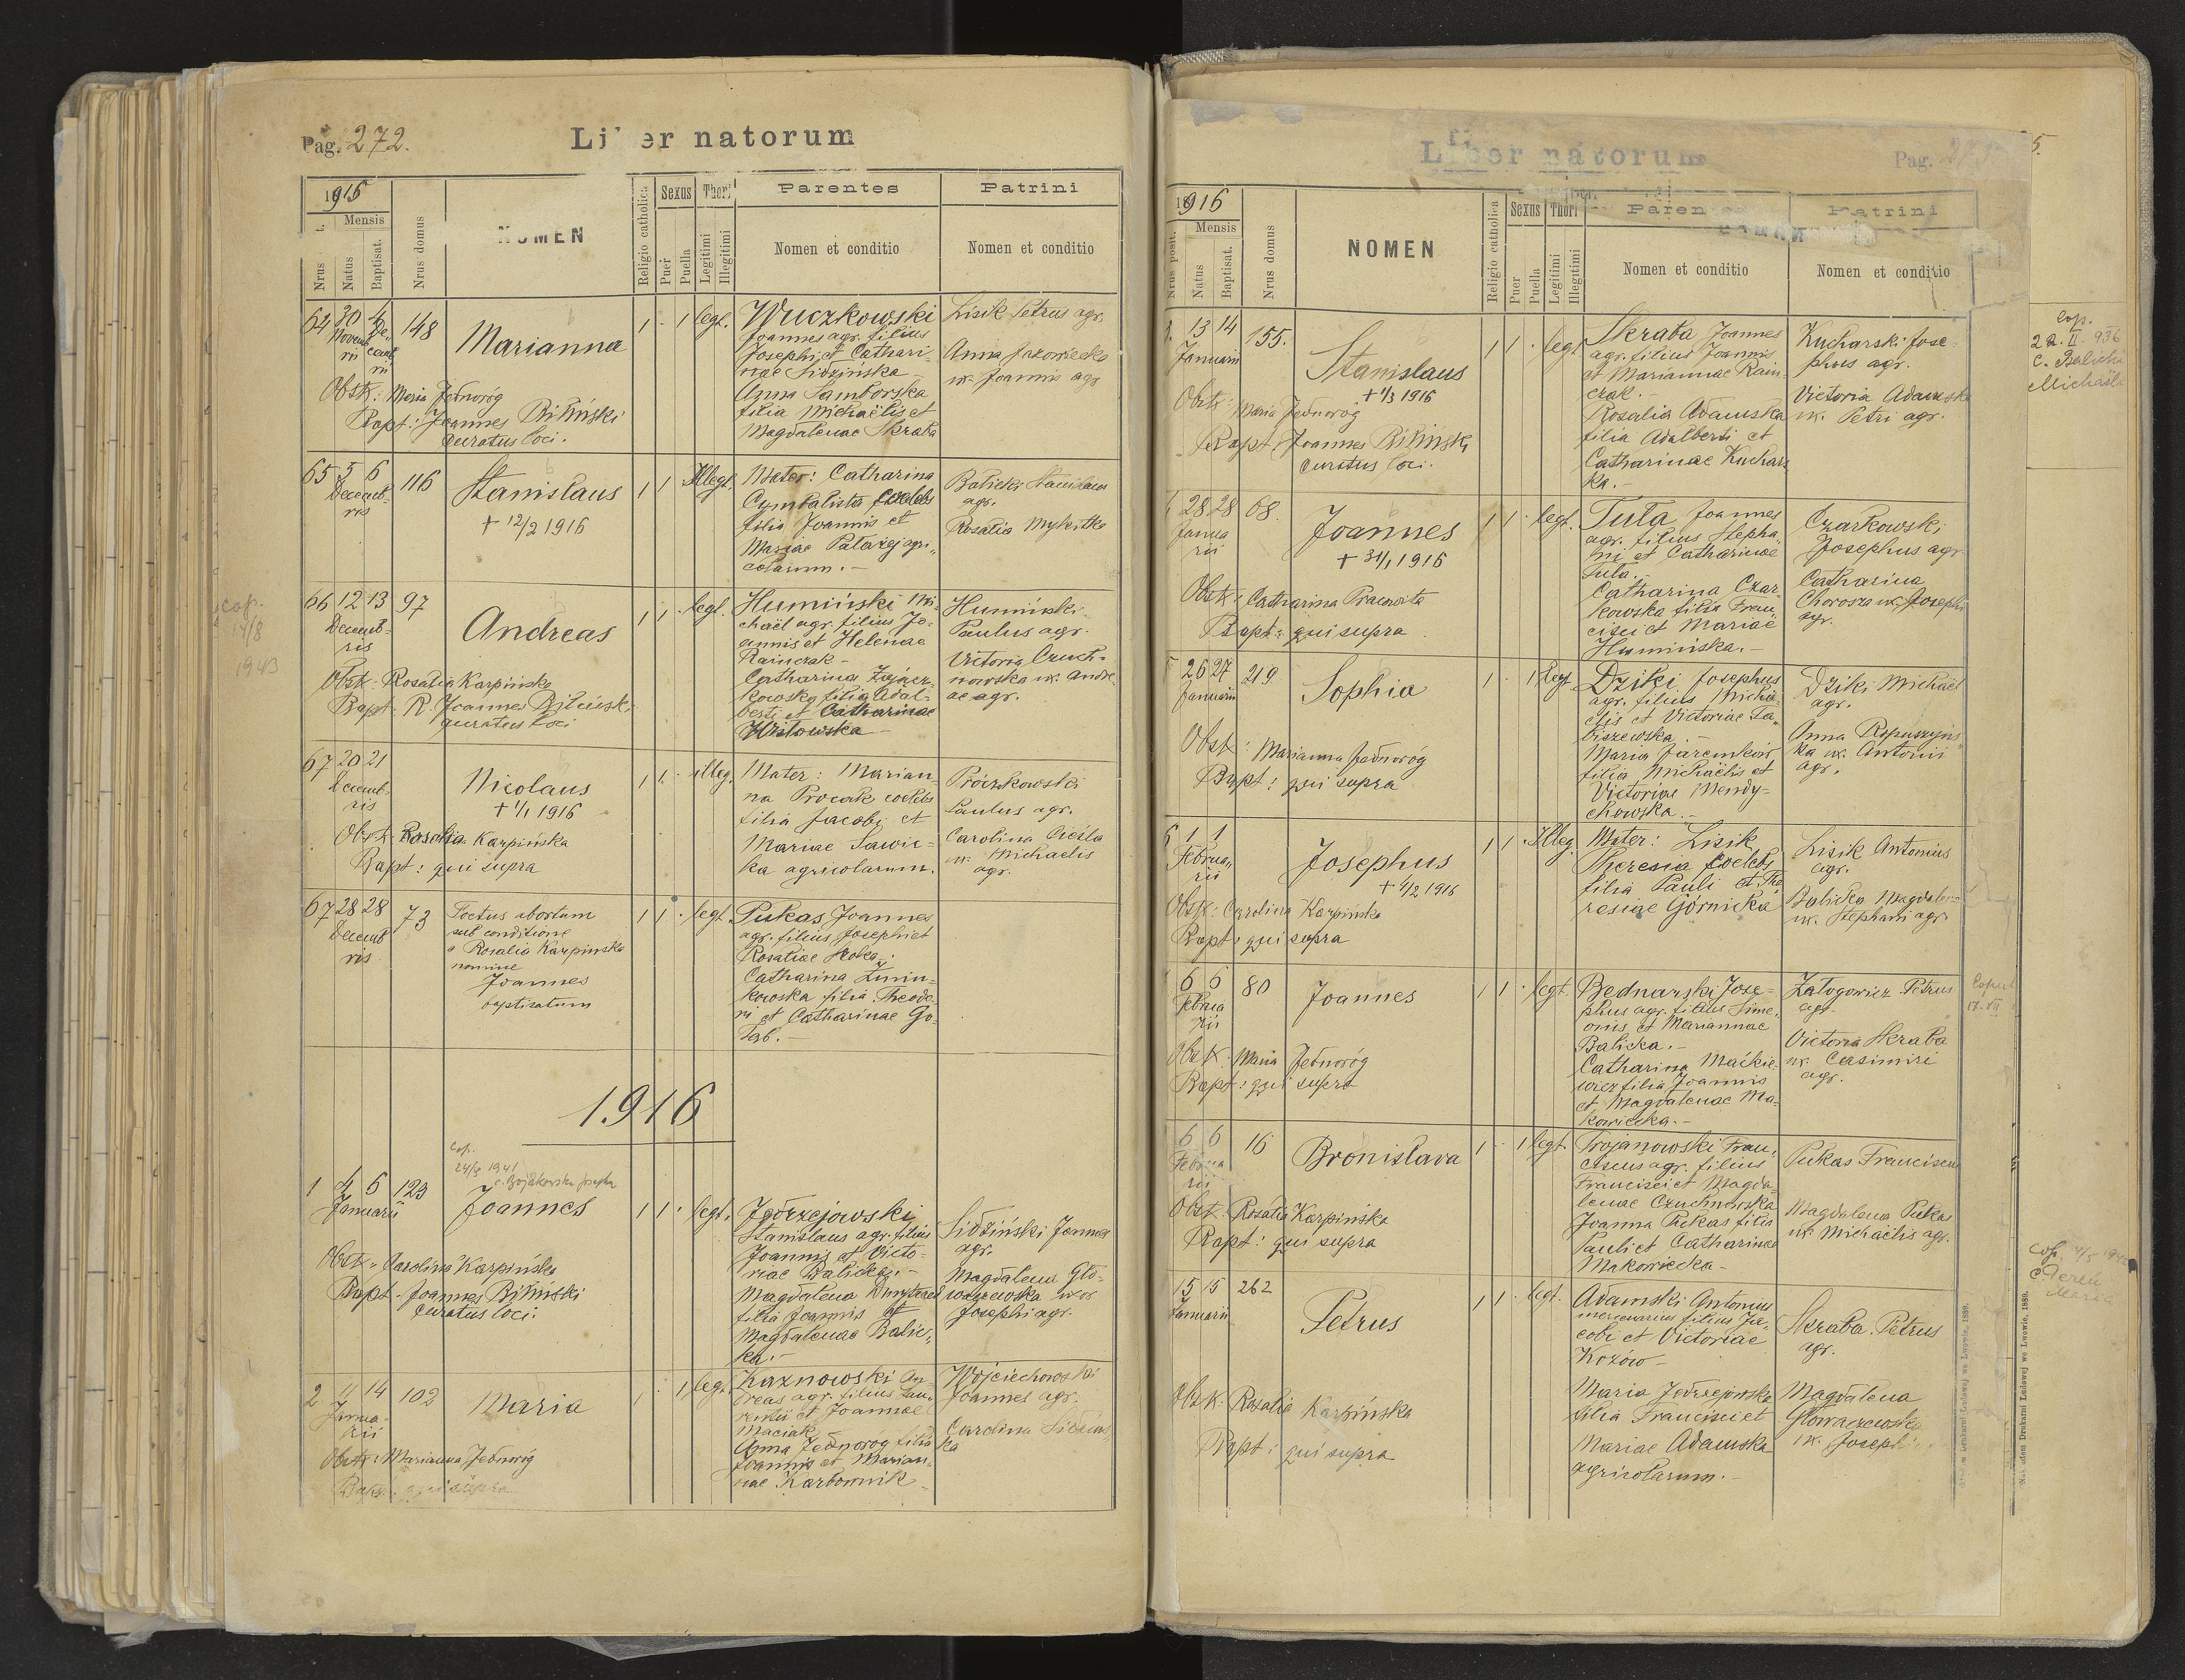 Pag. 272.
Liber natorum
1915
Mensis
Nrus
Natus
Baptisat.
Nrus domus
NOMEN
Religio catholica
Sexus
Puer
Puella
Thori
Legitimi
Illegitimi
Parentes
Nomen et conditio
Patrini
Nomen et conditio
64 30 4 148
Novemb
ris
De
cemb
ris
Marianna
1 - 1 legt.
Wuczkowski
Joannes agr. filius
Josephi et Cathari-
nae Sidzińska -
Anna Samborska
filia Michaëlis et
Magdalenae Skraba
Lisik Petrus agr.
Anna Makowiecka
ux. Joannis agr.
Obstr: Maria Jednoróg
Bapt: Joannes Biliński
curatus loci.
65 5 6 116
Decemb-
ris
Stanislaus
+ 12/2 1916
1 1 Illegt.
Mater: Catharina
Cymbalista coelebs
filia Joannis et
Mariae Patarzej agri-
colarum. -
Balicki Stanislaus
agr.
Rosalia Mykitka
66 12 13 97
Decemb-
ris
Andreas
1 1 - legt.
Humiński Mi-
chaël agr. filius Jo-
annis et Helenae
Rainczak -
Catharina Zającz-
kowska filia Adal-
berti et Catharinae
Witowska -
Humiński
Paulus agr.
Victoria Czuch-
nowska ux. Andre-
ae agr.
cop.
14/8
1943
Obstr: Rosalia Karpińska
Bapt. R. Joannes Biliński
curatus loci
67 20 21
Decemb-
ris
Nicolaus
+ 1/1 1916
1 1 - illeg.
Mater: Marian-
na Procak coelebs
filia Jacobi et
Mariae Sawic-
ka agricolarum.
Próczkowski
Paulus agr.
Carolina Cieśla
ux. Michaëlis
agr.
Obstr: Rosalia Karpińska
Bapt: qui supra
67 28 28 73
Decemb
ris
Foetus abortum
sub conditione
a Rosalia Karpinska
nomine
Joannes
baptisatum
1 1 - legt.
Pukas Joannes
agr. filius Josephi et
Rosaliae
Catharina Żmin-
kowska filia Theodo-
ri et Catharinae Go-
łąb. -
1916
cop.
24/8 1941
1 4 6 123
Januarii
Joannes
1 1 - legt.
Jędrzejowski
Stanislaus agr. filius
Joannis et Victo-
riae Balicka. -
Magdalena
filia Joannis et
Magdalenae Balic-
ka. -
Sidziński Joannes
agr.
Magdalena Gło-
waczewska uxor
Josephi agr.
Obstr: Carolina Karpińska
Bapt - Joannes Biliński
curatus loci.
2 11 14 102
Janua-
rii
Maria
1 - 1 legt.
Kaznowski An-
dreas agr. filius Lau-
rentii et Joannae
Maciak
Anna Jednoróg filia
Joannis et Marian-
nae Karbownik -
Wojciechowski
Joannes agr.
Carolina Sidzins
ka
Obstr: Marianna Jednoróg
Bapt: qui supra
Liber natorum
Pag. 273
5.
1916
Mensis
Nrus posit.
Natus
Baptisat.
Nrus domus
NOMEN
Religio catholica
Sexus
Puer
Puella
Thori
Legitimi
Illegitimi
Parentes
Nomen et conditio
Patrini
Nomen et conditio
13 14 155.
Januarii
Stanislaus
+ 1/3 1916
1 1 - legt
Skraba Joannes
agr. filius Joannis
et Mariannae Rain-
czak. -
Rosalia Adamska
filia Adalberti et
Catharinae Kuchars
ka. -
Kucharski Jose-
phus agr.
Victoria Adamska
ux. Petri agr.
cop.
22. II. 936
c. Balicka
Michaël
Obstr: Maria Jednoróg
Bapt. Joannes Biliński
curatus loci.
28 28 68
Janua
rii
Joannes
+ 31/1 1916
1 1 - legt.
Tuta Joannes
agr. filius Stepha-
ni et Catharinae
Tuta.
Catharina Czar-
kowska filia Fran-
cisci et Mariae
Humińska. -
Czarkowski
Josephus agr
Catharina
Chorosza ux. Josephi
agr.
Obstr: Catharina Pracowita
Bapt: qui supra
26 27 219
Januarii
Sophia
1 - 1 legt
Dziki Josephus
agr. filius Micha-
ëlis et Victoriae Ta-
biszewska. -
Maria Jaremków
filia Michaëlis et
Victoriae Mendy-
chowska. -
Dziki Michaël
agr.
Anna Ropuszyńs
ka ux. Antonii
agr.
Obstr: Marianna Jednoróg
Bapt: qui supra
6 1 1
Februa-
rii
Josephus
+ 4/2 1916
1 1 - Illeg.
Mater: Lisik
Theresia coelebs
filia Pauli et The
resiae Górnicka
Lisik Antonius
agr.
Balicka Magdalena
ux. Stephani agr.
Obstr: Carolina Karpińska
Bapt: qui supra
6 6 80
Februa
rii
Joannes
1 1 - legt.
Bednarski Jose-
phus agr. filius Sime-
onis et Mariannae
Balicka. -
Catharina Maćkie-
wicz filia Joannis
et Magdalenae Ma-
kowiecka. -
Załogowicz Petrus
agr.
Victoria Skraba
ux. Casimiri
agr.
Obstr: Maria Jednoróg
Bapt: qui supra
6 6 16
Februa
rii
Bronislava
1 - 1 legt.
Trojanowski Fran-
ciscus agr. filius
Francisci et Magda-
lenae Czuchnowska
Joanna Pukas filia
Pauli et Catharinae
Makowiecka -
Pukas Franciscus
Magdalena Pukas
ux. Michaëlis agr.
Obstr: Rosalia Karpińska
Bapt: qui supra
15 15 262
Januarii
Petrus
1 1 - legt.
Adamski Antonius
mercenarius filius Ja-
cobi et Victoriae
Kozów -
Maria Jędrzejowska
filia Francisci et
Mariae Adamska
agricolarum. -
Skraba Petrus
agr.
Magdalena
Głowaczewska
ux. Josephi
Obstr: Rosalia Karpińska
Bapt: qui supra
Nakładem Drukarni Ludowej we Lwowie, 1889.